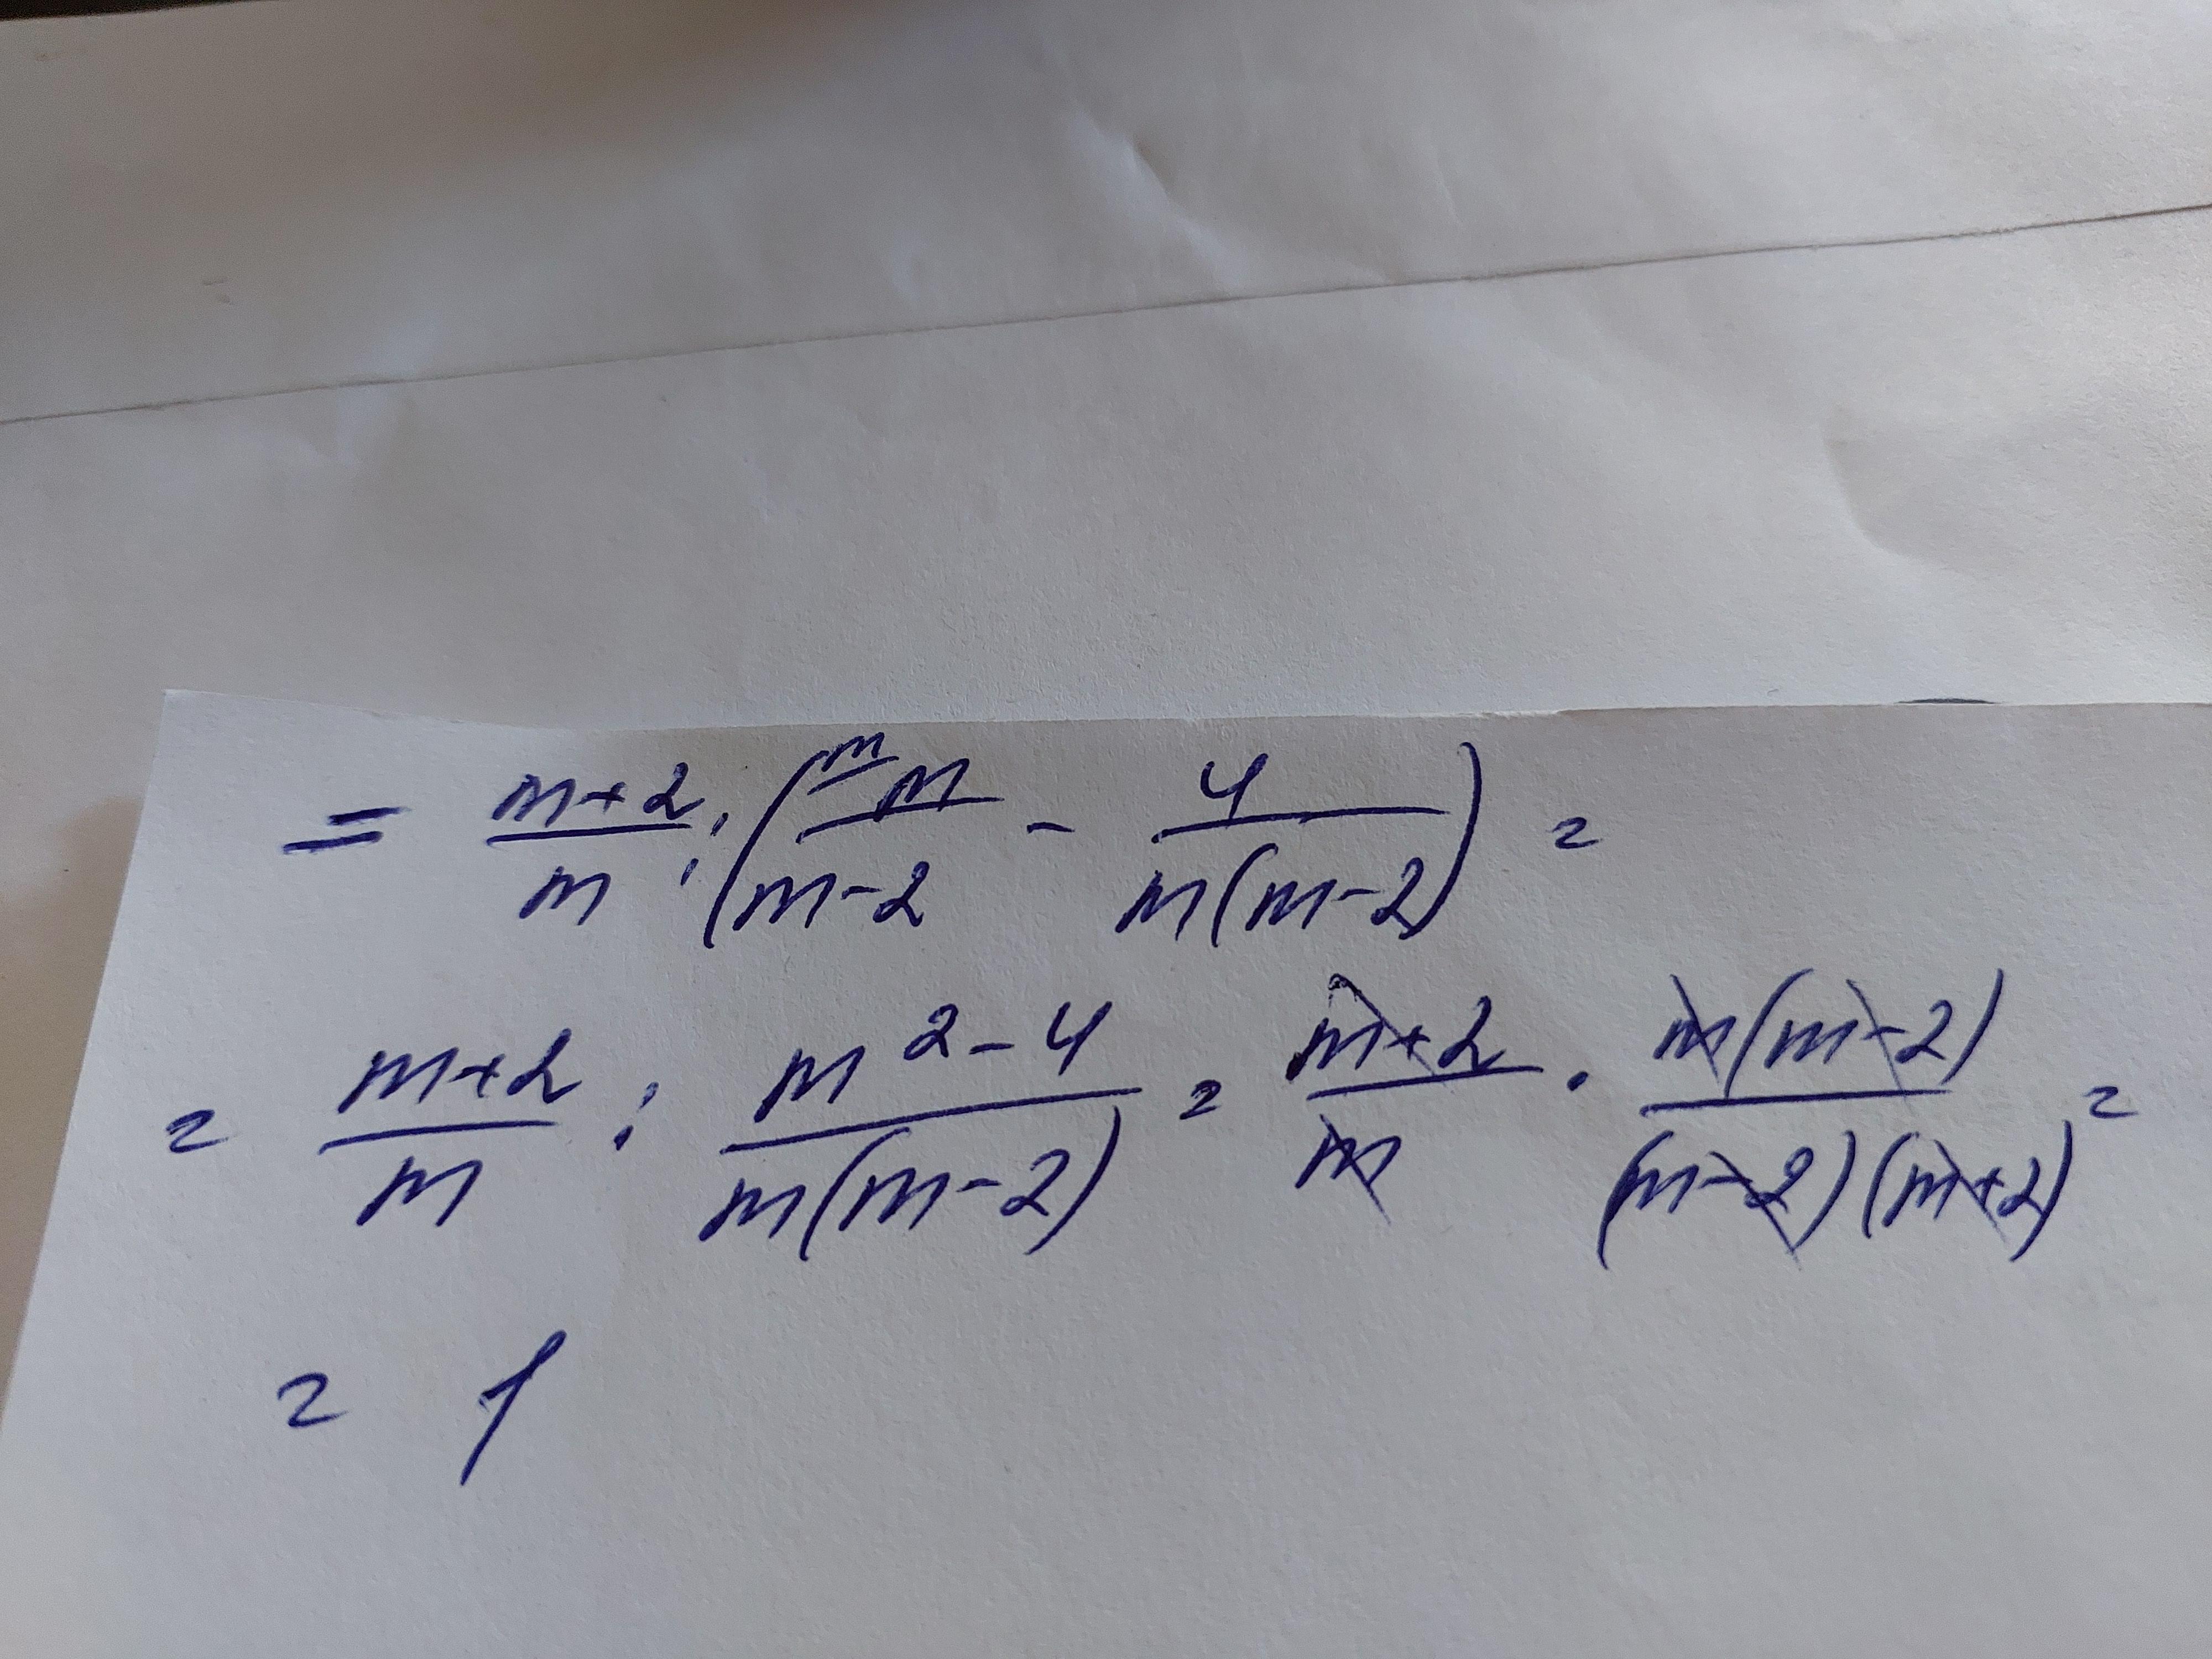 = (m+2)/m : (^m m/(m-2) - 4/(m(m-2))) =
= (m+2)/m : (m²-4)/(m(m-2)) = (m+2)/m · (m(m-2))/((m-2)(m+2)) =
= 1